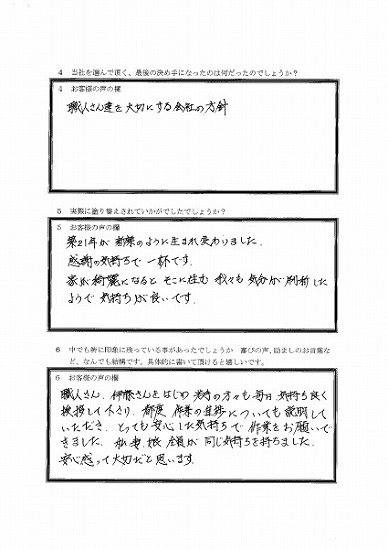 4 当社を選んで頂く、最後の決め手になったのは何だったのでしょうか?
4 お客様の声の欄
職人さん達を大切にする会社の方針
5 実際に塗り替えされていかがでしたでしょうか?
5 お客様の声の欄
築21年が新築のように生まれ変わりました。
感謝の気持ちで一杯です。
家が綺麗になると そこに住む 我々も 気分が刷新した
ようで 気持ちが良いです。
6 中でも特に印象に残っている事があったでしょうか 喜びの声、励ましのお言葉な
ど、なんでも結構です。具体的に書いて頂けると嬉しいです。
6 お客様の声の欄
職人さん、伊藤さんをはじめ 方々も 毎日 気持ち良く
挨拶して下さり、都度 作業の進捗についても説明して
いただき、とっても安心した気持ちで 作業をお願いで
きました。私、妻、娘 全員が 同じ気持ちを持ちました。
安心感って大切だと思います。